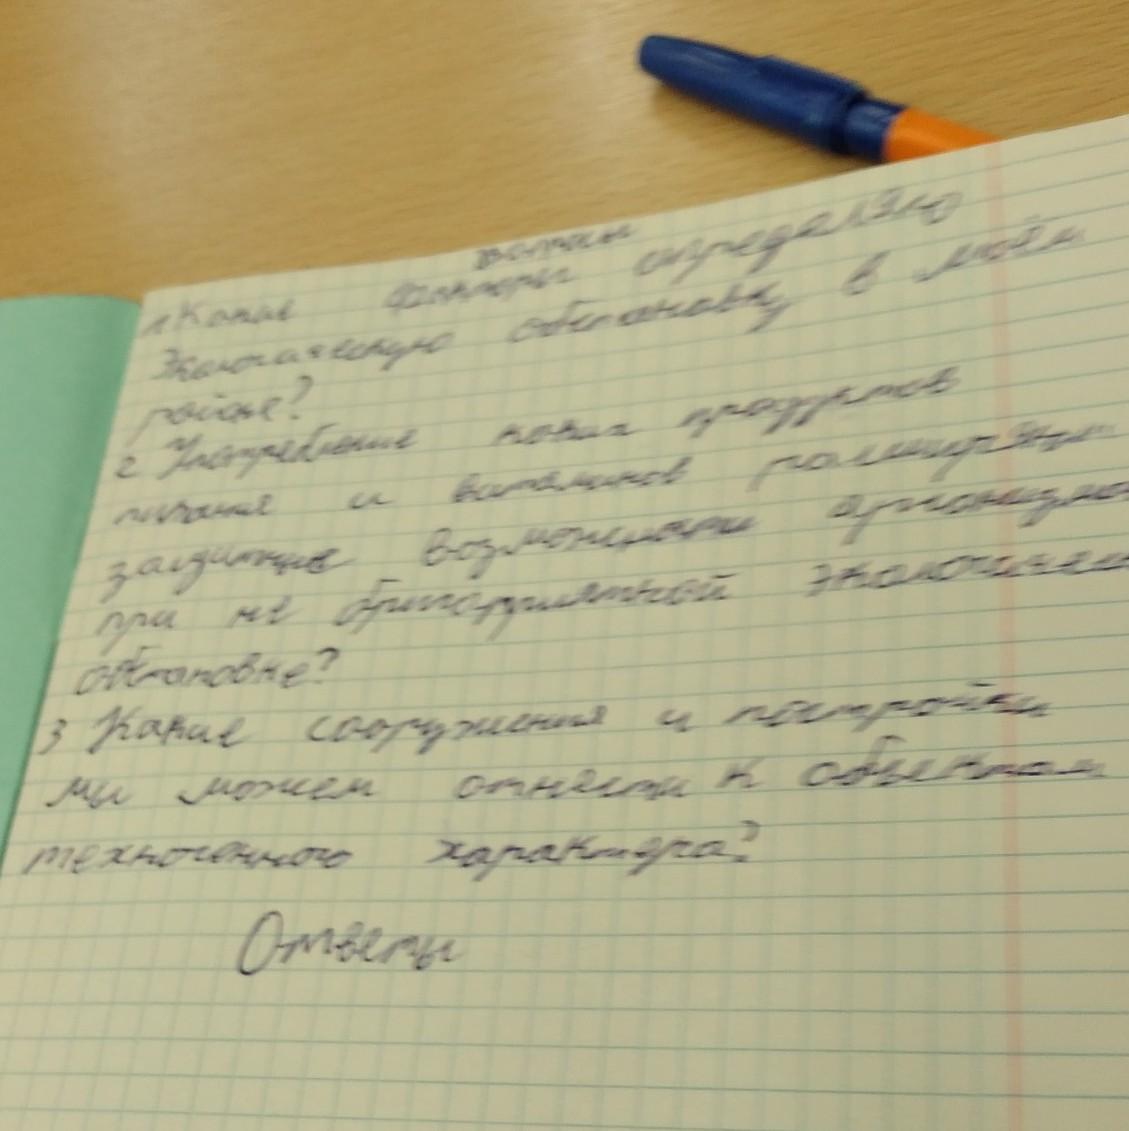 Вопросы
1. Какие факторы определяю
экологическую обстановку в моём
районе?
2 Употребление каких продуктов
питания и витаминов расширяют
защитные возможности организма
при не благоприятной экологичес
обстановке?
3 Какие сооружения и постройки
мы можем отнести к объектам
техногенного характера?
Ответы